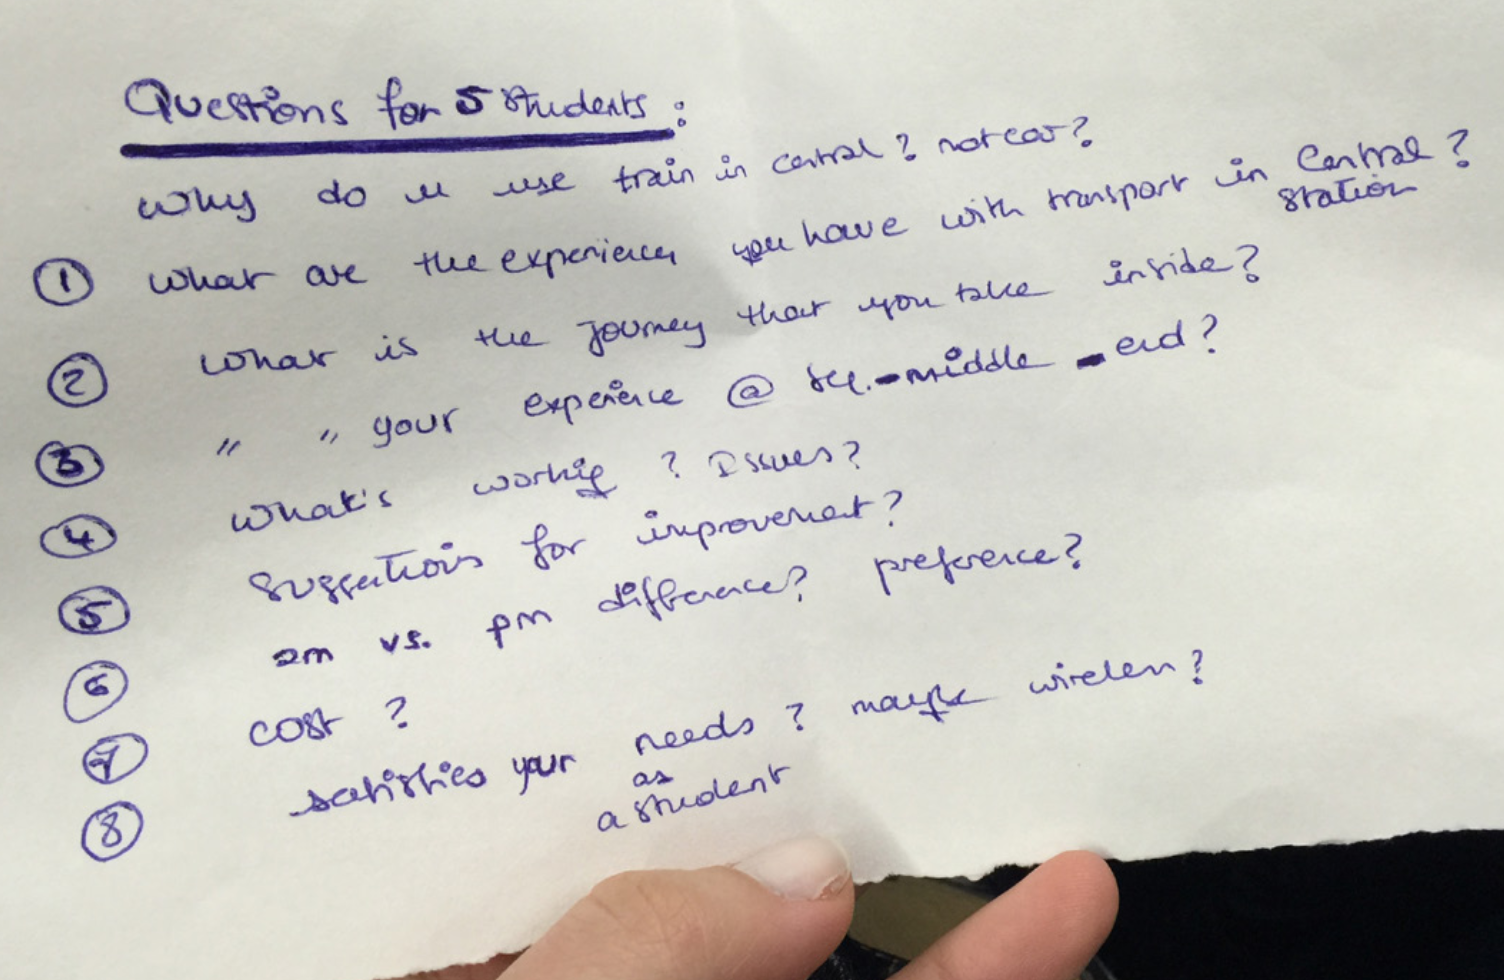 Questions for 5 students:
Why do u use train in central? not car?
① What are the experiences you have with transport in Central station?
② What is the journey that you take inside?
③ " " your experience @ - middle - end?
④ What's working? Issues?
⑤ Suggestions for improvement?
⑥ am vs. pm difference? preference?
⑦ cost?
⑧ satisfies your needs? maybe wireless?
as
a student